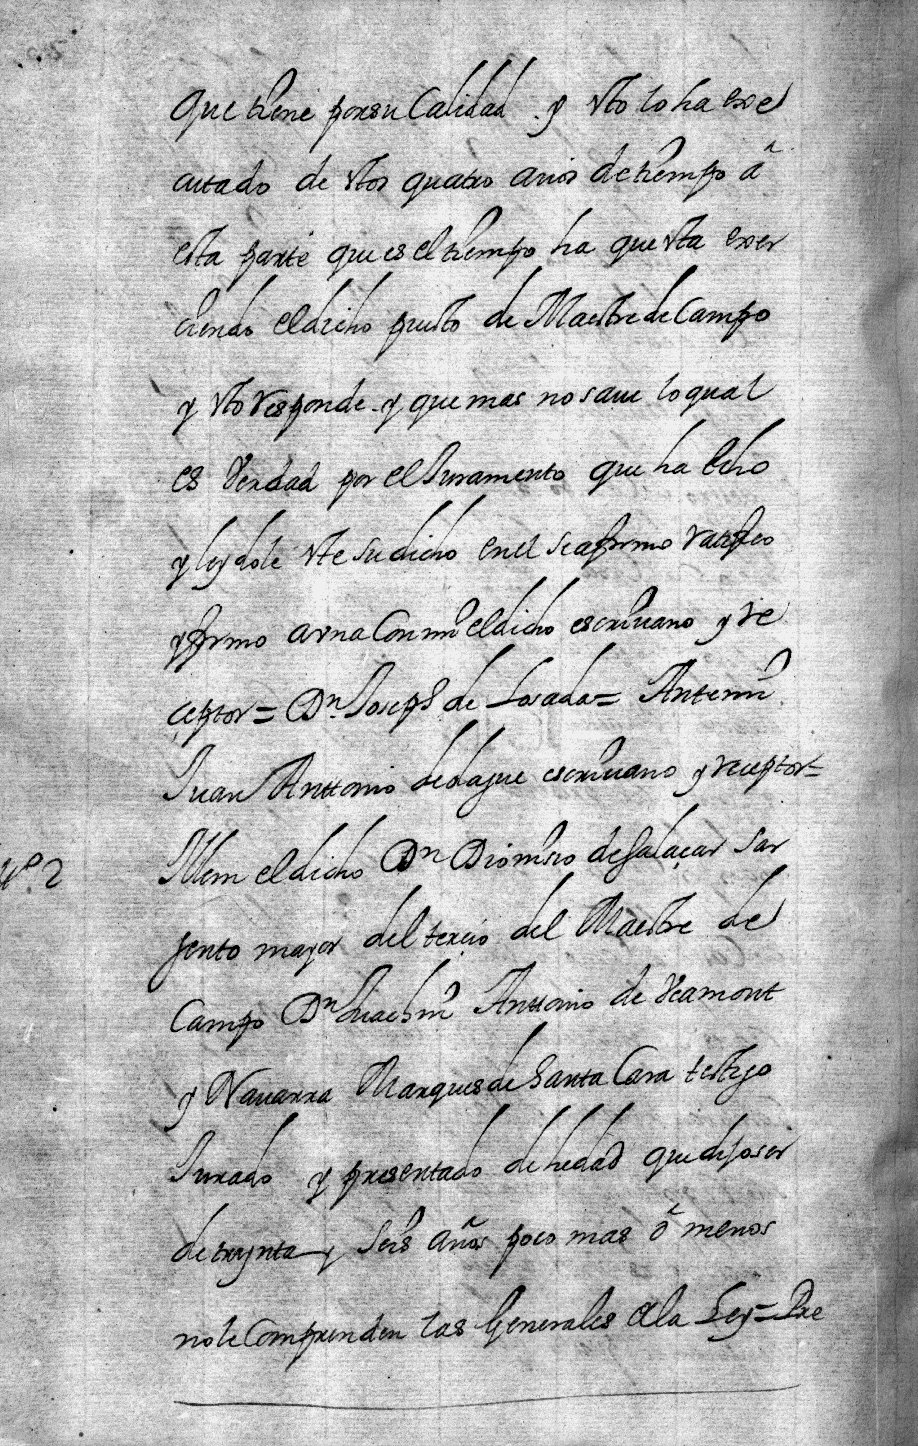 que tiene por su Calidad y esto lo ha exe
cutado de estos quatro años de tiempo â
esta parte que es el tiempo ha que esta exer
ciendo el dicho puesto de Maestre de Campo
y esto responde y que mas no save lo qual
es Verdad por el Juramento que ha echo
y leydole este su dicho en el se afirmo ratifico
y firmo a una Con mi el dicho escriuano y re
ceptor = Dn Joseph de Losada = Ante mi
Juan Anttonio de olague escriuano y receptor =
tto. 2
Ittem el dicho Dn Dionisio de Salaçar Sar
jento mayor del tercio del Maestre de
Campo Dn Juachin Anttonio de Veamont
y Nauarra Marques de Santa Cara testigo
Jurado y presentado de hedad que dijo ser
de treynta y seis años poco mas ô menos
no le Comprenden las Generales de la Ley = Pre